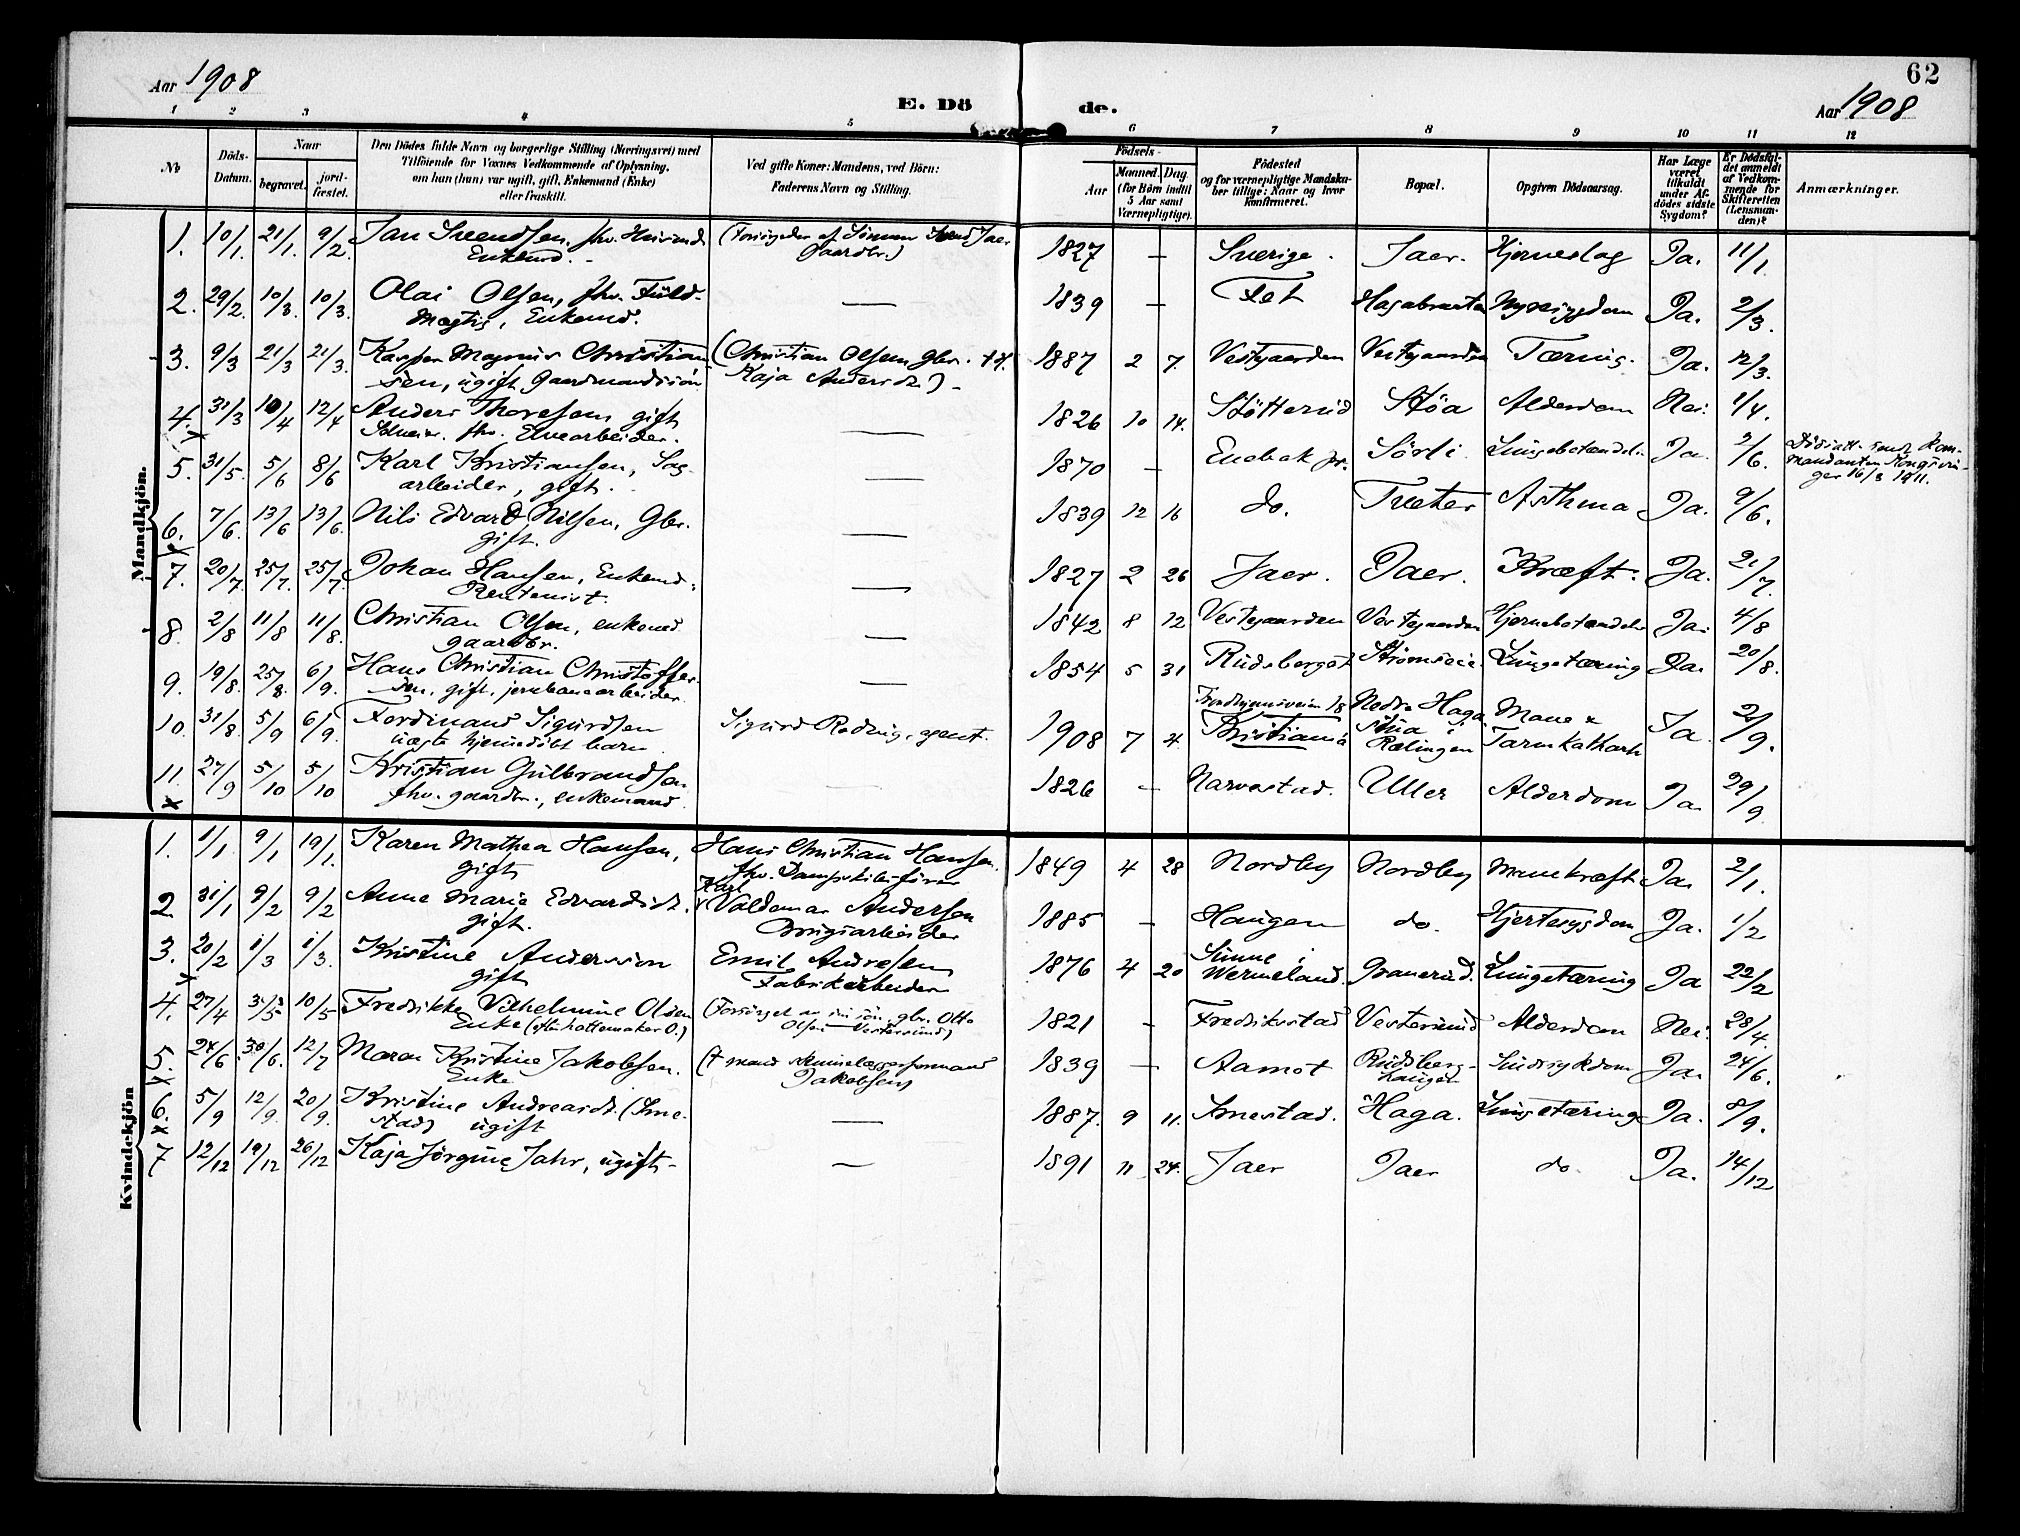 62
Aar 1908
E. Dö de.
Aar 1908
1 2 3 4 5 6 7 8 9 10 11 12
No
Döds-Datum.
Naar
begravet.
jord-fæstet.
Den Dödes fulde Navn og borgerlige Stilling (Næringsvei) med
Tilföiende for Voxnes Vedkommende af Oplysning,
om han (hun) var ugift, gift, Enkemand (Enke)
eller fraskilt.
Ved gifte Koner: Mandens, ved Börn:
Faderens Navn og Stilling.
Födsels-
Aar
Maaned. Dag.
(for Börn indtil
5 Aar samt
Værnepligtige).
Födested
og for værnepligtige Mandska-
ber tillige: Naar og hvor
konfirmeret.
Bopæl.
Opgiven Dödsaarsag.
Har Læge
været
tilkaldt
under Af-
dödes sidste
Sygdom?
Er Dödsfal-
det anmeldt
af Vedkom-
mende for
Skifteretten
(Lensman-
den)?
Anmærkninger.
Mandkjön.
1. 10/1. 21/1. 9/2. Jan Svendsen, fhv. Enkemd. (Forsørgedes af Sönnen Svend Jaer Gaardbr.) 1827 — Sverige. Jaer. Hjerneslag Ja. 11/1.
2. 29/2. 10/3. 10/3. Olai Olsen, fhv. Fuld-
mægtig, Enkemd. — 1839 — Fet Nyresygdom Ja. 2/3.
3. 9/3 21/3 21/3. Kasper Magnus Christian-
sen, ugift, Gaardmandssön (Christian Olsen, Gbr. Kaja Andersdt.) 1887 2 7. Vestgaarden Vestgaarden Tæring. Ja. 12/3.
4. 31/3 10/4 12/4 Anders Thoresen, gift
fhv. Elvearbeider. — 1826 10 14. Støtterud Støa Alderdom Nei. 1/4.
5. 31/5. 5/6 8/6 Karl Kristiansen, Sag-
arbeider, gift. — 1870 — Enebak pr. Sörli Lungebetændelse Ja. 2/6. Dödsatt. sendt Kom-
mandanten Kongsvin-
ger 16/3 1911.
6. 7/6. 13/6 13/6. Nils Edvard Nilsen, Gbr.
gift. — 1839 12 16 do. Træter Asthma Ja. 9/6.
7. 20/7. 25/7. 25/7. Johan Hansen, Enkemd.
Rentenist. — 1827 2 26 Jaer. Jaer. Kræft. Ja. 21/7.
8. 2/8 11/8 11/8. Christian Olsen, enkemd.
gaardbr. — 1842 8 12 Vestgaarden Vestgaarden Hjernebetændelse Ja. 4/8
9. 19/8. 25/8. 6/9. Hans Christian Christoffer-
sen, gift, jernbanearbeider. — 1854 5 31 Rudsberget Strømsvei Lungetæring Ja. 20/8.
10. 31/8. 5/9 6/9. Ferdinand Sigurdsen
uægte hjemmedöbt barn Sigurd Reduig, agent. 1908 7 4. Trondhjemsveien 18 Kristiania Nedre Haga Stua i Rælingen Mave &
Tarmkatharh Ja. 2/9.
11. 27/9 5/10 5/10 Kristian Gulbrandsen
fhv. gaardbr., enkemand. — 1826 — Narvestad. Uller Alderdom Ja. 29/9
Kvindekjön
1. 1/1 9/1 19/1. Karen Mathea Hansen,
gift Hans Christian Hansen.
fhv. Dampskibsförer 1849 4 28 Nordby Nordby Mavekræft Ja. 2/1.
2 31/1 9/2 9/2 Anne Marie Edvardsdt.
gift. Karl Valdemar Andersen
Brugsarbeider 1885 — Haugen do. Hjertesygdom Ja. 1/2
3. 20/2 1/3 1/3. Kristine Andersson
gift Emil Andresen
Fabrikarbeider 1876 4 20 Sunne i
Wermeland. Granerud. Lungetæring Ja 22/2
4. 27/4 3/5 10/5 Fredrikke Vilhelmine Olsen
Enke (efter hattemaker O.) (Forsörget av sin sön, gbr. Otto
Olsen Vestersund) 1821 — Fredrikstad Vestersund Alderdom Nei. 28/4.
5. 24/6. 30/6. 12/7 Maren Kristine Jakobsen.
Enke (+ mand Jakobsen) 1839 — Aamot Rudsberg-
haugen Sindssykdom Ja. 24/6.
6. 5/9 12/9. 20/9. Kristine Andreasdt. (Sme-
stad) ugift — 1887. 9 11. Smestad. Haga. Lungetæring Ja. 8/9.
7 12/12 19/12 26/12 Kaja Jörgine Jahr, ugift — 1891 11 24. Jaer Jaer do Ja. 14/12